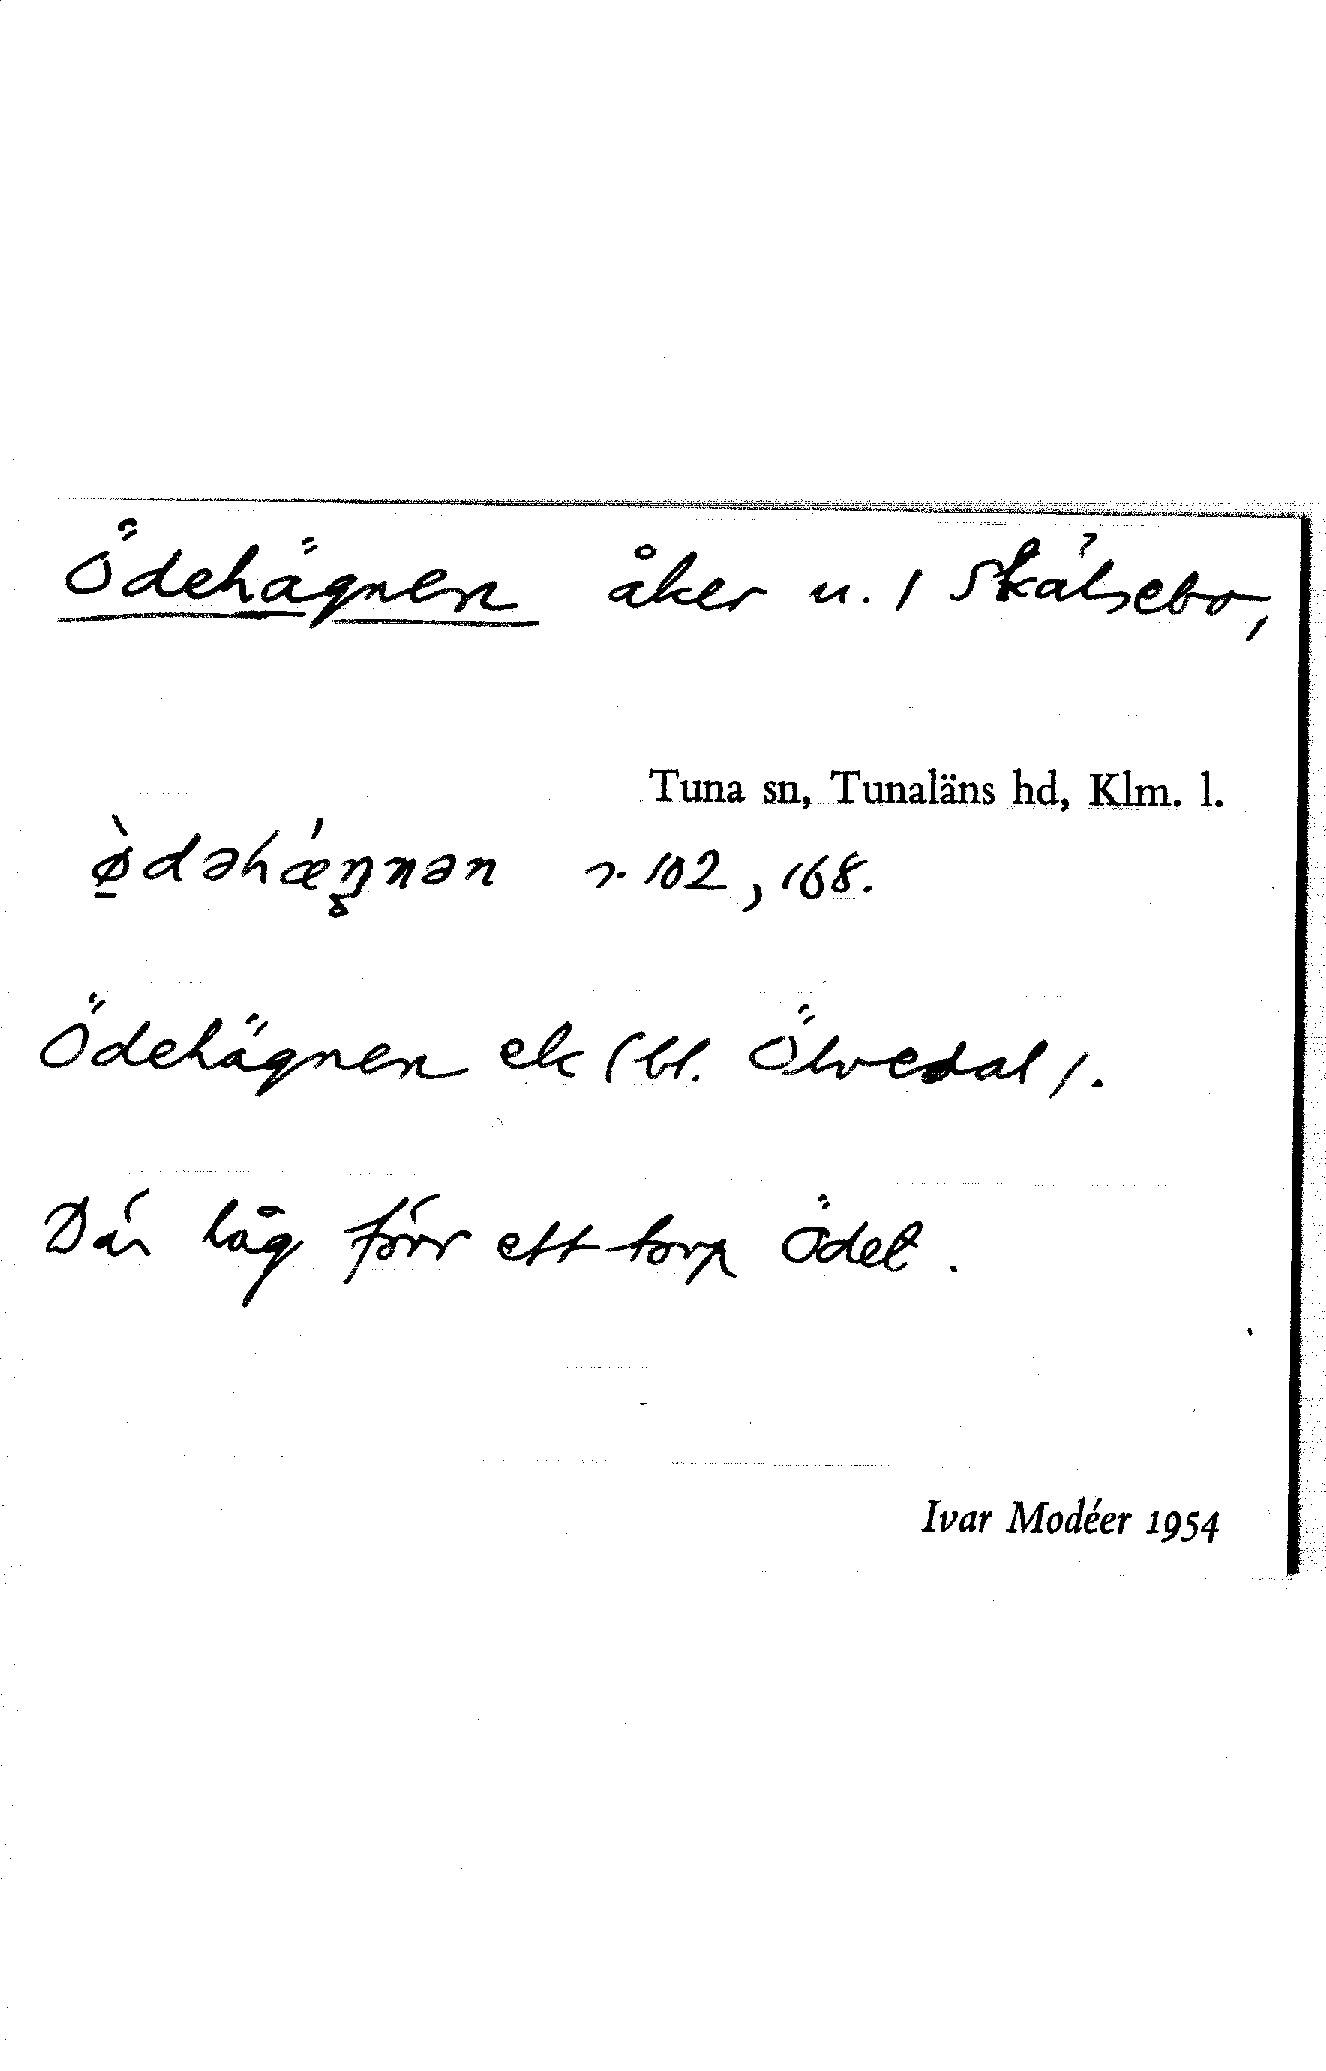 Ödehägnen åker u. 1 Skälsebo,
Tuna sn, Tunaläns hd, Klm. l.
ø̱̀dəhǽŋnən r. 102, 168.
Ödehägnen ek (bl. Ölvedal).
Där låg förr ett torp Ödet.
Ivar Modéer 1954